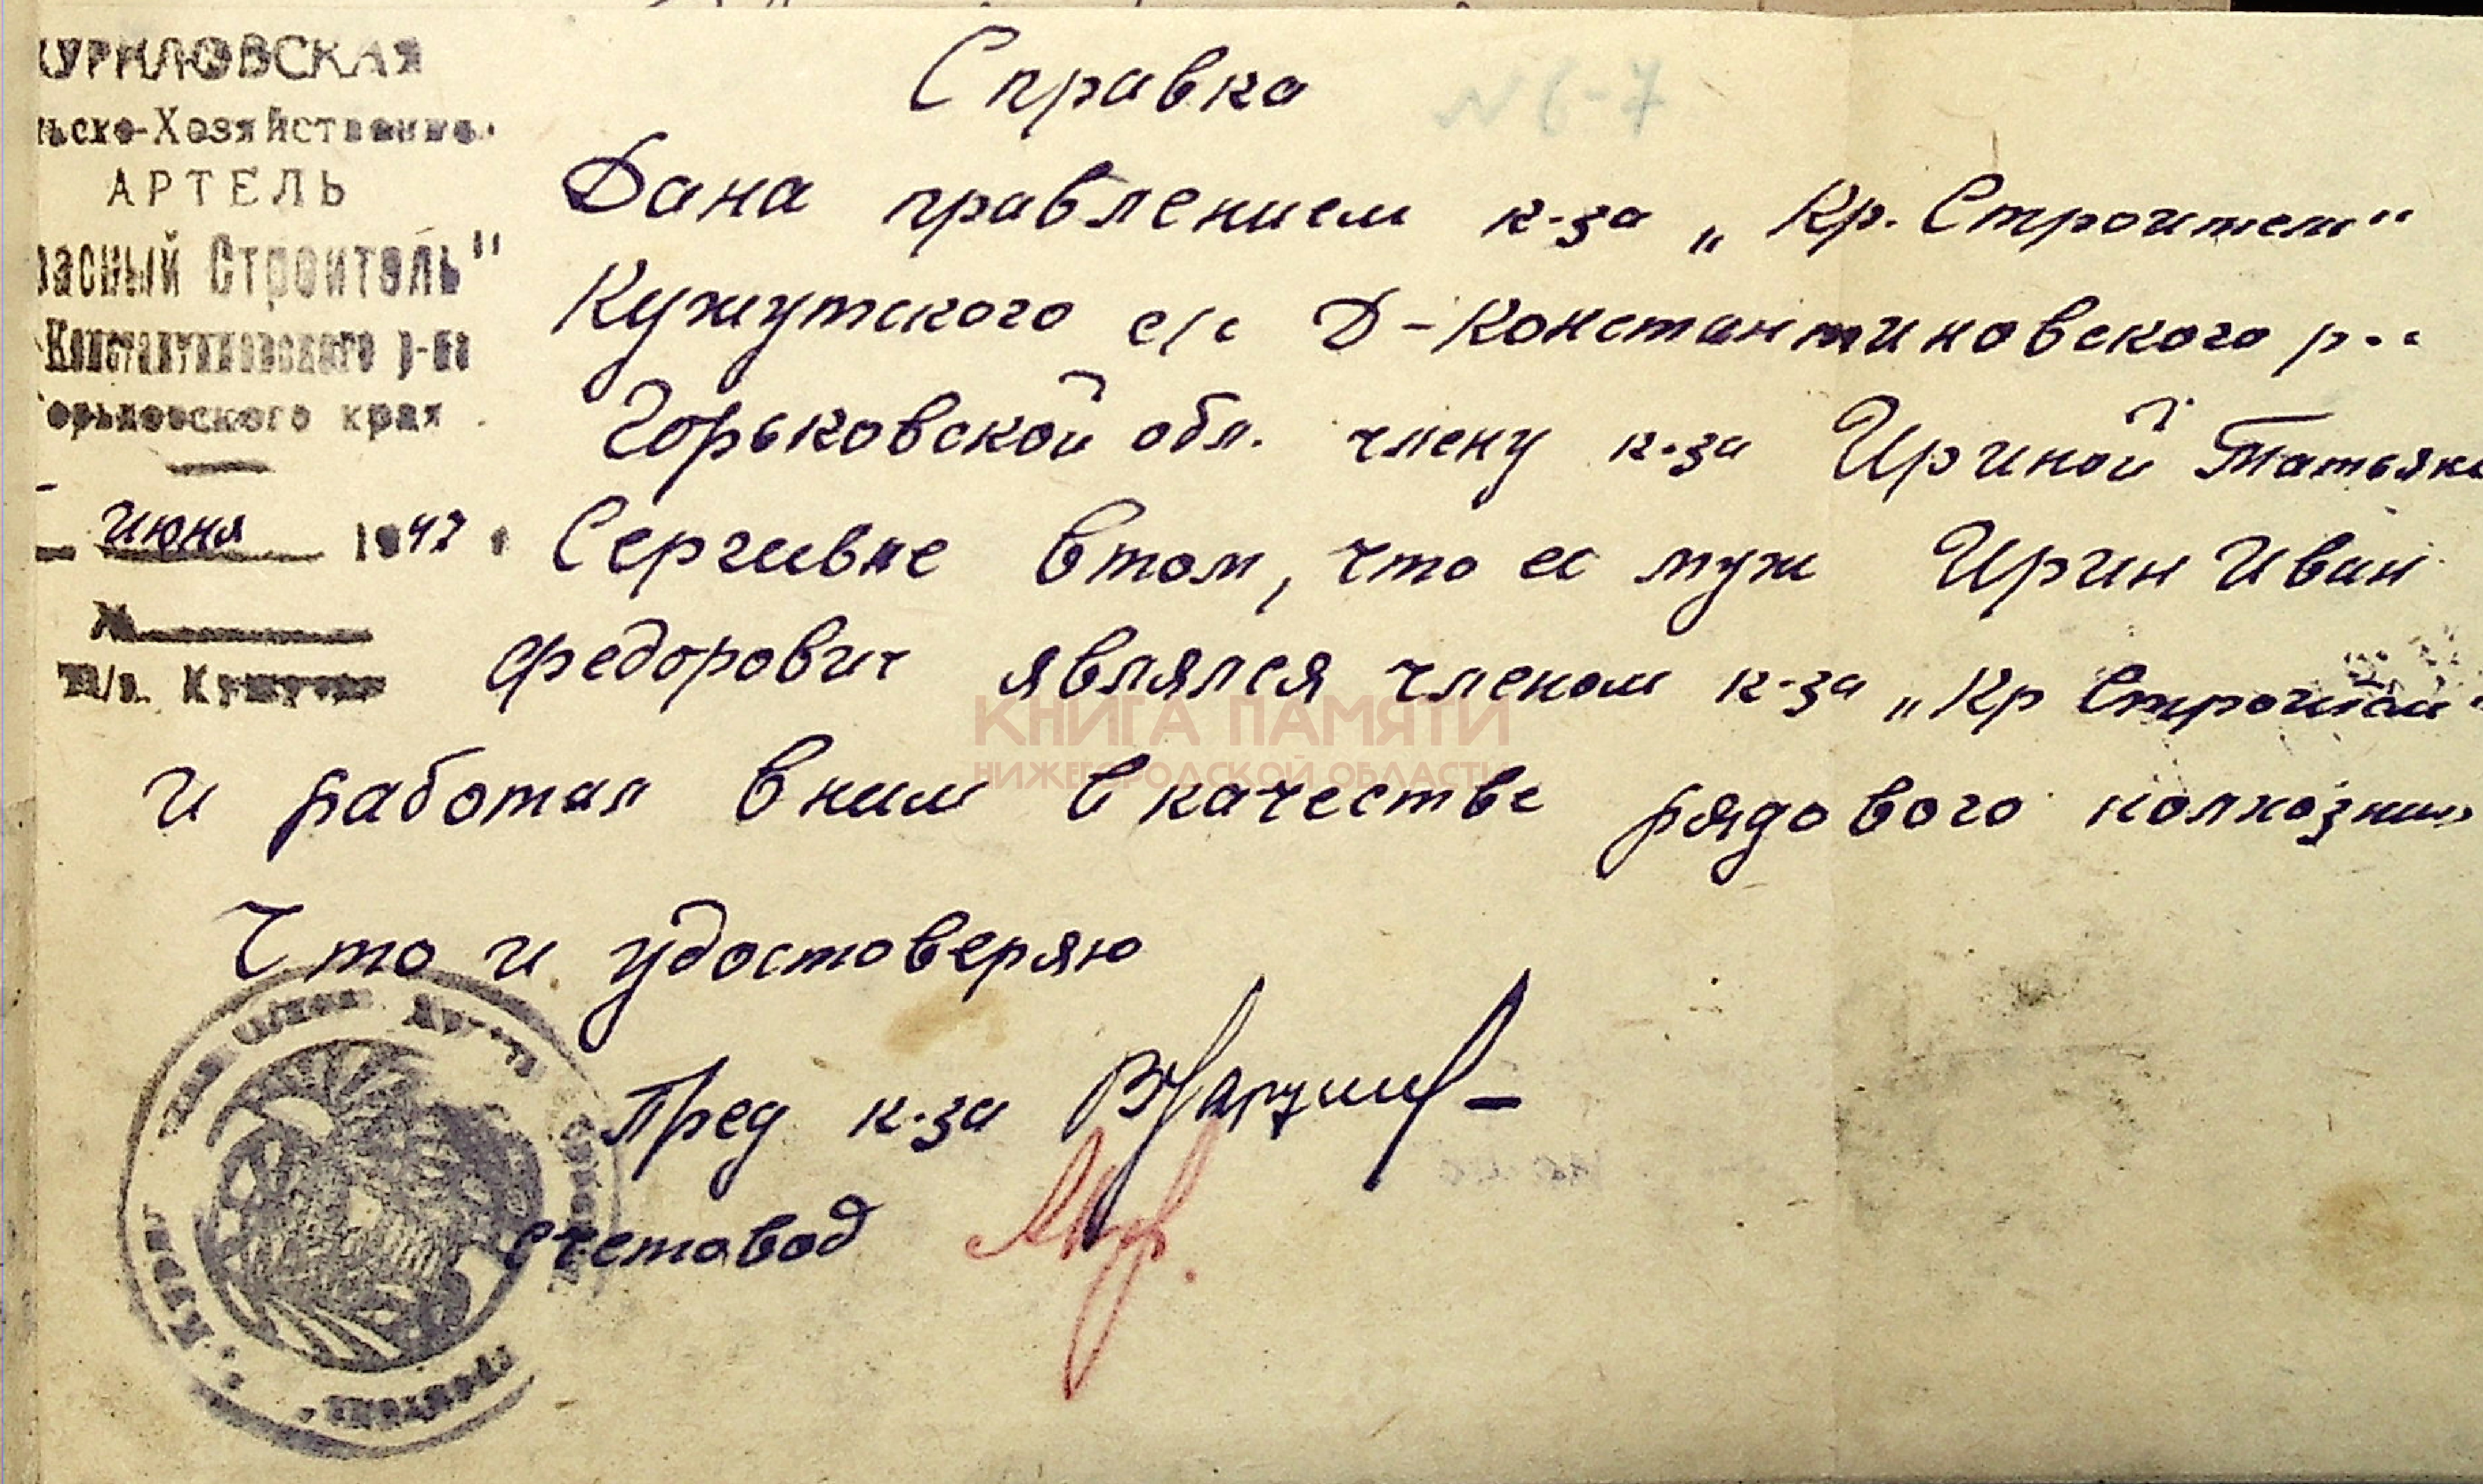 КУРИЛОВСКАЯ
льско-Хозяйственная
АРТЕЛЬ
расный Строитель"
-Константиновского р-на
Горьковского края.
июня 1947
№
п/о. Кужутки
Справка
№ 6-7
Дана правлением к-за „Кр. Строитель"
Кужутского с/с Д-Константиновского р-
Горьковской обл. члену к-за Ириной Татьяне
Сергеивне втом, что ее муж Ирин Иван
Федорович являлся членом к-за „Кр Строитель"
КНИГА ПАМЯТИ
НИЖЕГОРОДСКОЙ ОБЛАСТИ
и работал вним в качестве рядового колхозник
Что и удостоверяю
Пред к-за
счетовод